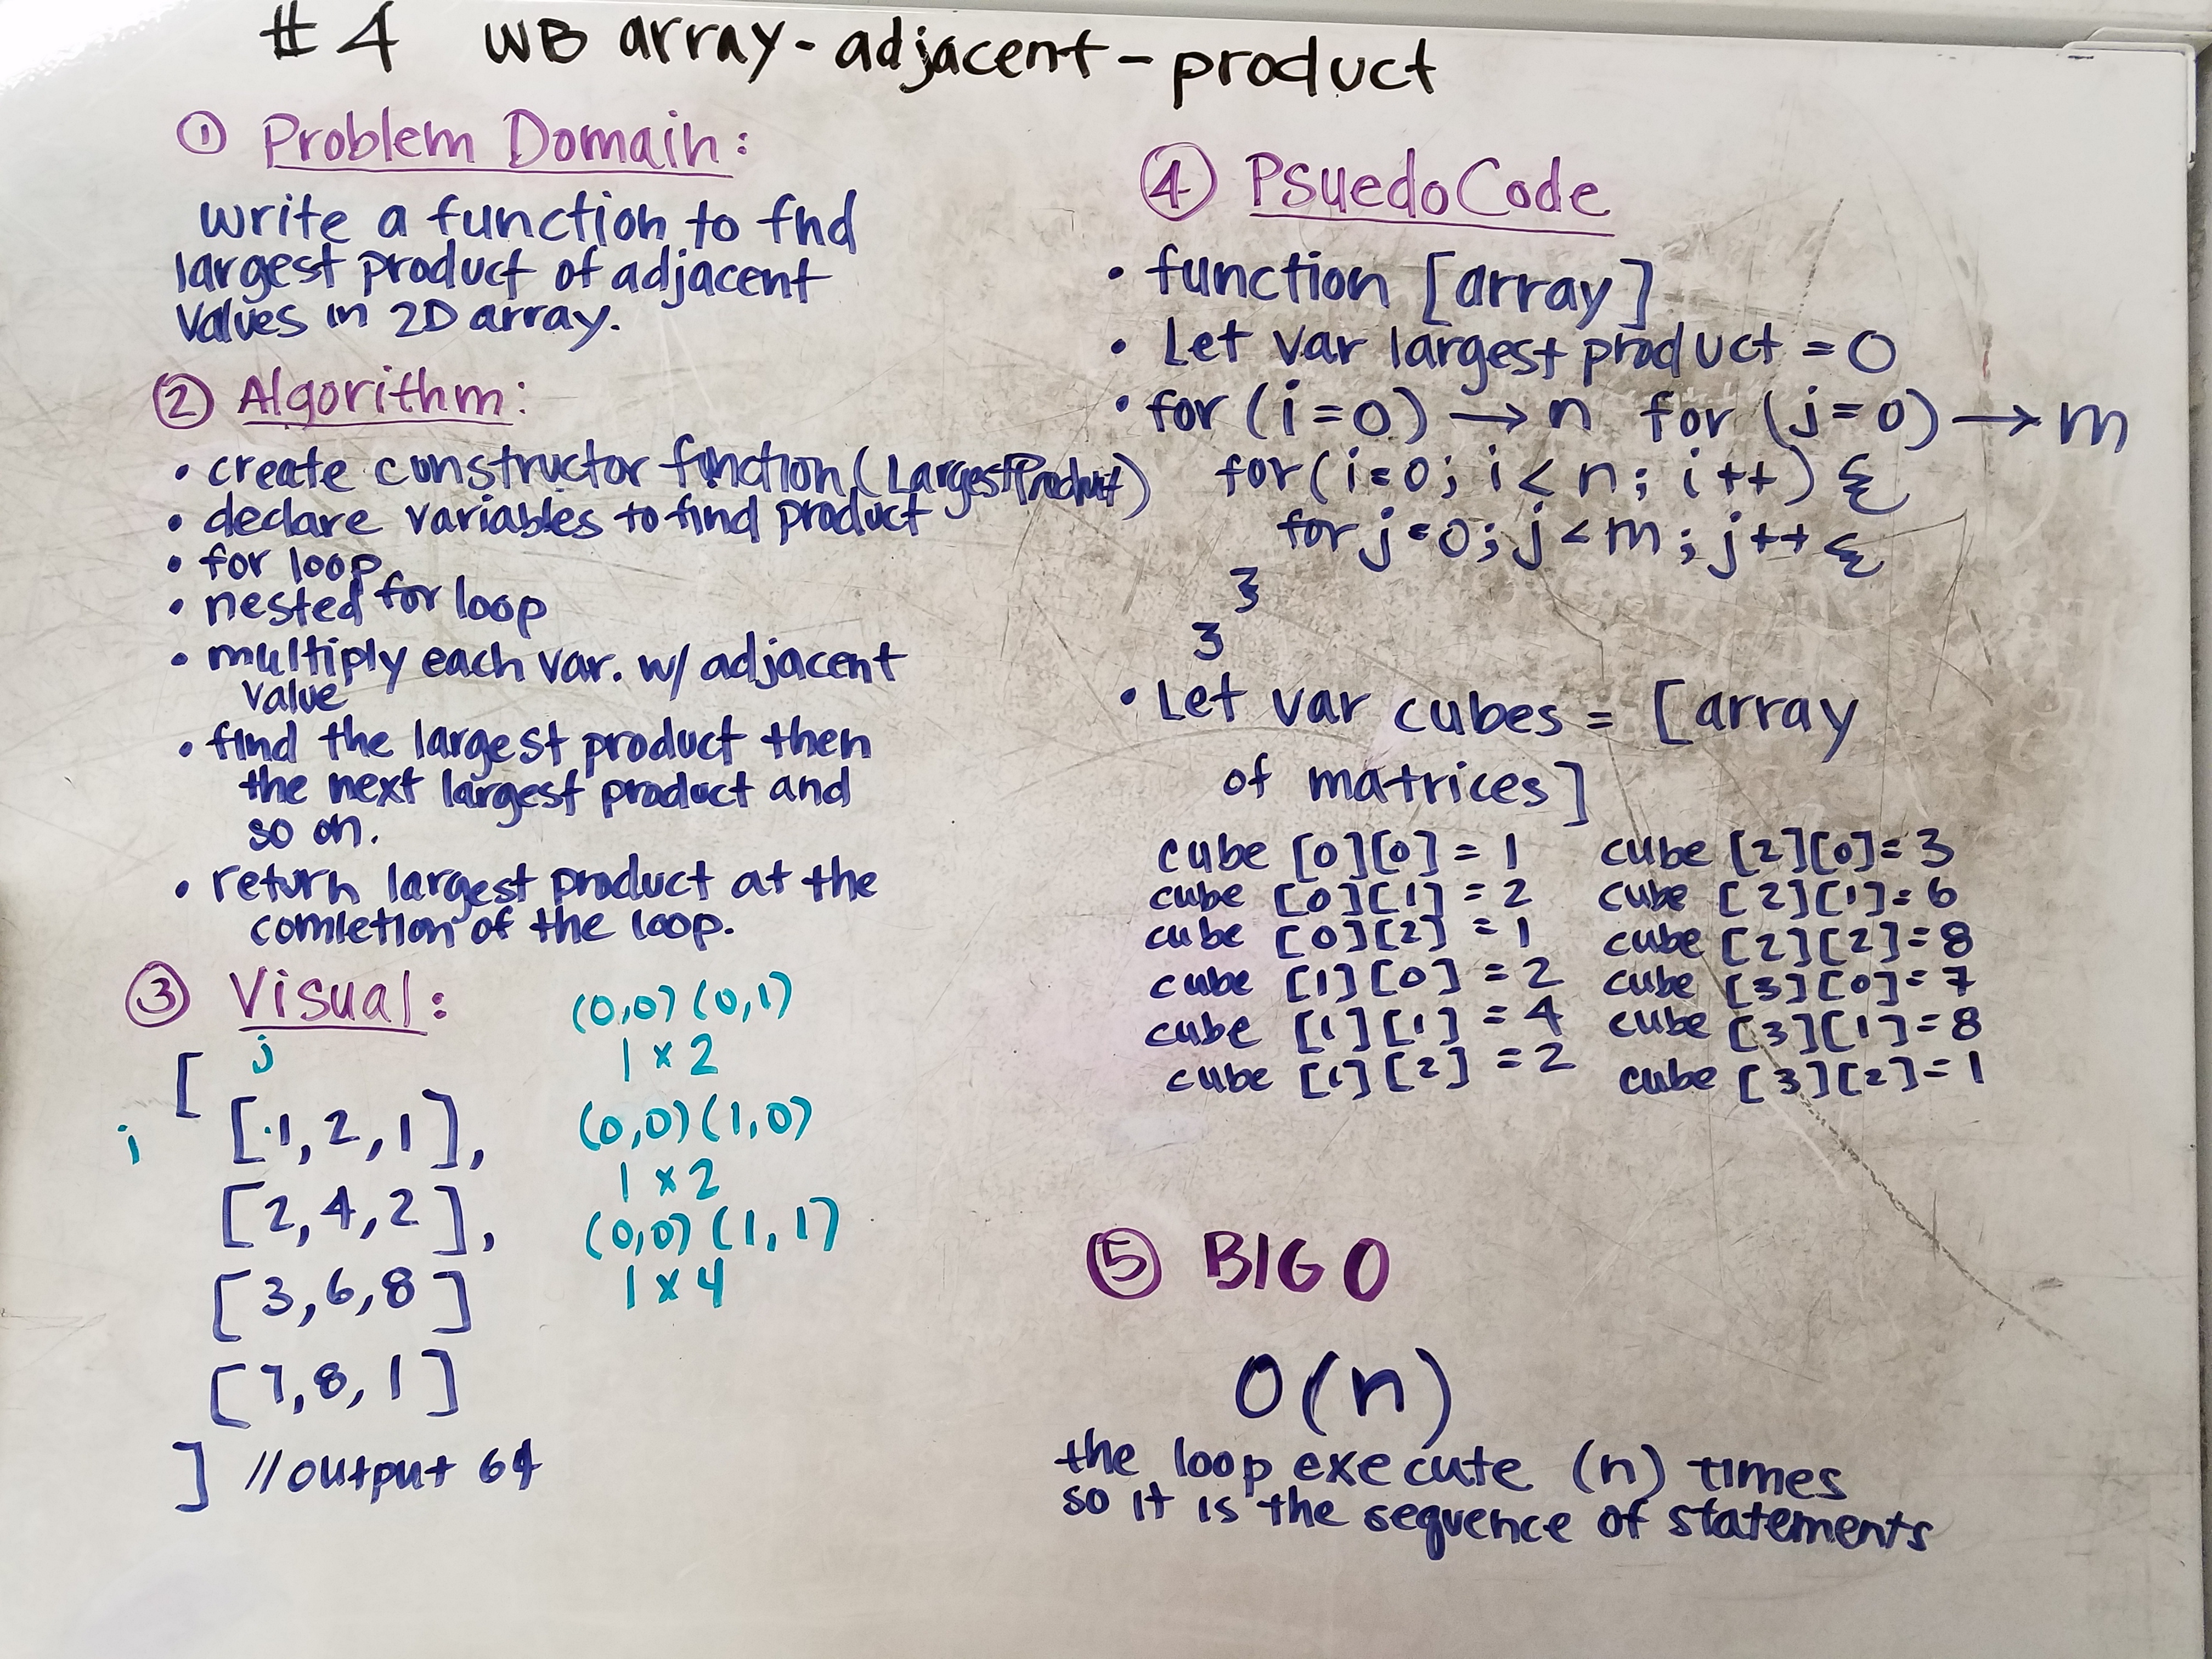 #4 WB array-adjacent-product
① Problem Domain:
write a function to find
largest product of adjacent
values in 2D array.
② Algorithm:
• create constructor function (LargestProduct)
• declare variables to find product
• for loop
• nested for loop
• multiply each var. w/ adjacent
value
• find the largest product then
the next largest product and
so on.
• return largest product at the
comletion of the loop.
③ Visual:
j
[
i
[1, 2, 1],
[2, 4, 2],
[3, 6, 8]
[7, 8, 1]
] //output 64
(0,0) (0,1)
1 x 2
(0,0) (1,0)
1 x 2
(0,0) (1,1)
1 x 4
④ PsuedoCode
• function [array]
• Let var largest product = 0
• for (i=0) → n for (j=0) → m
for (i=0; i < n; i++) {
for j=0; j < m; j++ {
}
}
• Let var cubes = [array
of matrices]
cube [0][0] = 1
cube [0][1] = 2
cube [0][2] = 1
cube [1][0] = 2
cube [1][1] = 4
cube [1][2] = 2
cube [2][0] = 3
cube [2][1] = 6
cube [2][2] = 8
cube [3][0] = 7
cube [3][1] = 8
cube [3][2] = 1
⑤ BIG O
O(n)
the loop execute (n) times
so it is the sequence of statements